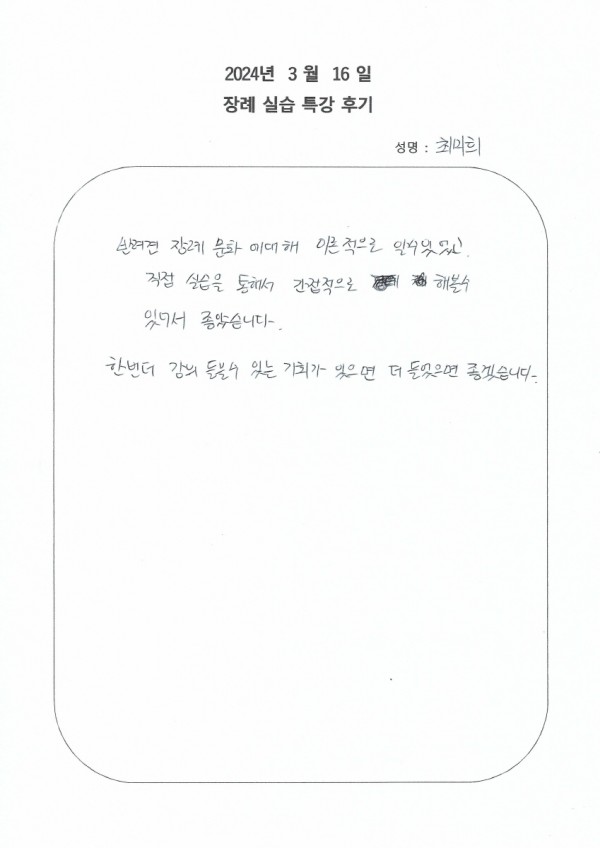 2024년 3 월 16 일
장례 실습 특강 후기
성명 : 최미희
반려견 장례 문화 에대해 이론적으로 알수있었고.
직접 실습을 통해서 간접적으로 해볼수
있어서 좋았습니다.
한번더 강의 들을수 있는 기회가 있으면 더 들었으면 좋겠습니다.